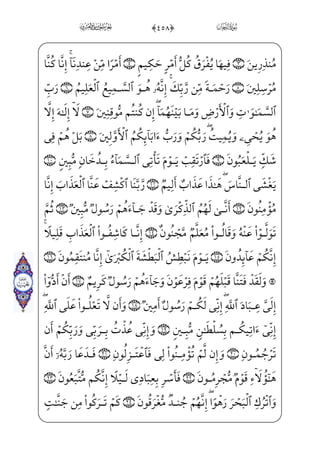 ﴿٤٥٨﴾
مُنذِرِينَ ٣ فِيهَا يُفْرَقُ كُلُّ أَمْرٍ حَكِيمٍ ٤ أَمْرًا مِّنْ عِندِنَآ إِنَّا كُنَّا
مُرْسِلِينَ ٥ رَحْمَةً مِّن رَّبِّكَ إِنَّهُۥ هُوَ ٱلسَّمِيعُ ٱلْعَلِيمُ ٦ رَبِّ
ٱلسَّمَٰوَٰتِ وَٱلْأَرْضِ وَمَا بَيْنَهُمَآ إِن كُنتُم مُّوقِنِينَ ٧ لَآ إِلَٰهَ إِلَّا
هُوَ يُحْيِۦ وَيُمِيتُ رَبُّكُمْ وَرَبُّ ءَابَآئِكُمُ ٱلْأَوَّلِينَ ٨ بَلْ هُمْ فِى
شَكٍّ يَلْعَبُونَ ٩ فَٱرْتَقِبْ يَوْمَ تَأْتِى ٱلسَّمَآءُ بِدُخَانٍ مُّبِينٍ ١٠
يَغْشَى ٱلنَّاسَ هَٰذَا عَذَابٌ أَلِيمٌ ١١ رَّبَّنَا ٱكْشِفْ عَنَّا ٱلْعَذَابَ إِنَّا
مُؤْمِنُونَ ١٢ أَنَّىٰ لَهُمُ ٱلذِّكْرَىٰ وَقَدْ جَآءَهُمْ رَسُولٌ مُّبِينٌ ١٣ ثُمَّ
تَوَلَّوْا۟ عَنْهُ وَقَالُوا۟ مُعَلَّمٌ مَّجْنُونٌ ١٤ إِنَّا كَاشِفُوا۟ ٱلْعَذَابِ قَلِيلًا
إِنَّكُمْ عَآئِدُونَ ١٥ يَوْمَ نَبْطِشُ ٱلْبَطْشَةَ ٱلْكُبْرَىٰٓ إِنَّا مُنتَقِمُونَ ١٦
۞ وَلَقَدْ فَتَنَّا قَبْلَهُمْ قَوْمَ فِرْعَوْنَ وَجَآءَهُمْ رَسُولٌ كَرِيمٌ ١٧ أَنْ أَدُّوٓا۟
إِلَىَّ عِبَادَ ٱللَّهِ إِنِّى لَكُمْ رَسُولٌ أَمِينٌ ١٨ وَأَن لَّا تَعْلُوا۟ عَلَى ٱللَّهِ
إِنِّىٓ ءَاتِيكُم بِسُلْطَٰنٍ مُّبِينٍ ١٩ وَإِنِّى عُذْتُ بِرَبِّى وَرَبِّكُمْ أَن
تَرْجُمُونِ ٢٠ وَإِن لَّمْ تُؤْمِنُوا۟ لِى فَٱعْتَزِلُونِ ٢١ فَدَعَا رَبَّهُۥٓ أَنَّ
هَٰٓؤُلَآءِ قَوْمٌ مُّجْرِمُونَ ٢٢ فَأَسْرِ بِعِبَادِى لَيْلًا إِنَّكُم مُّتَّبَعُونَ ٢٣
وَٱتْرُكِ ٱلْبَحْرَ رَهْوًا إِنَّهُمْ جُندٌ مُّغْرَقُونَ ٢٤ كَمْ تَرَكُوا۟ مِن جَنَّٰتٍ